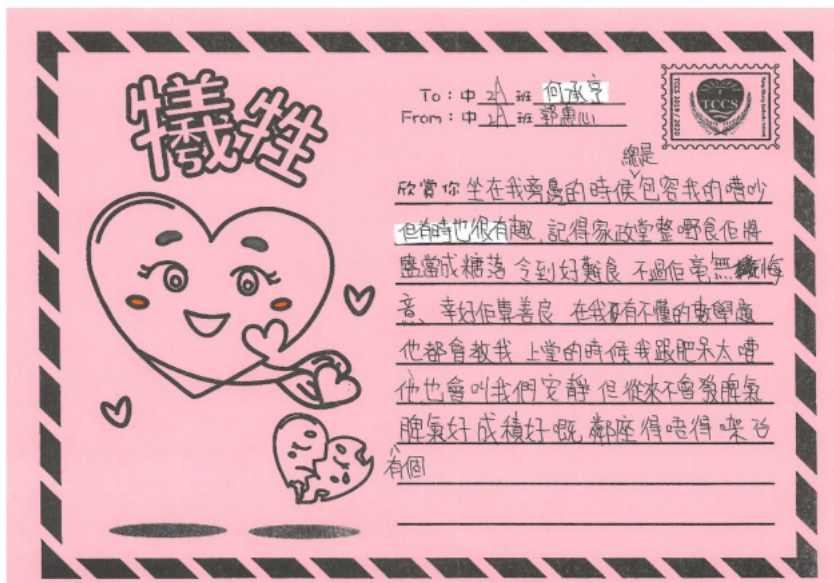 犧牲
To：中 2A 班 何承亨
From：中 2A 班 郭惠心
TCCS 2019 / 2020
TCCS
總是
欣賞你 坐在我旁邊的時候包容我的嘈吵
但有時也很有趣，記得家政堂整嘢食佢將
鹽當成糖落 令到好難食 不過佢毫無悔
意、幸好佢算善良 在我有不懂的數學題
他都會教我 上堂的時候我跟肥呆太嘈
他也會叫我們安靜 但從來不會發脾氣
脾氣好成積好嘅 鄰座得唔得㗎
有個